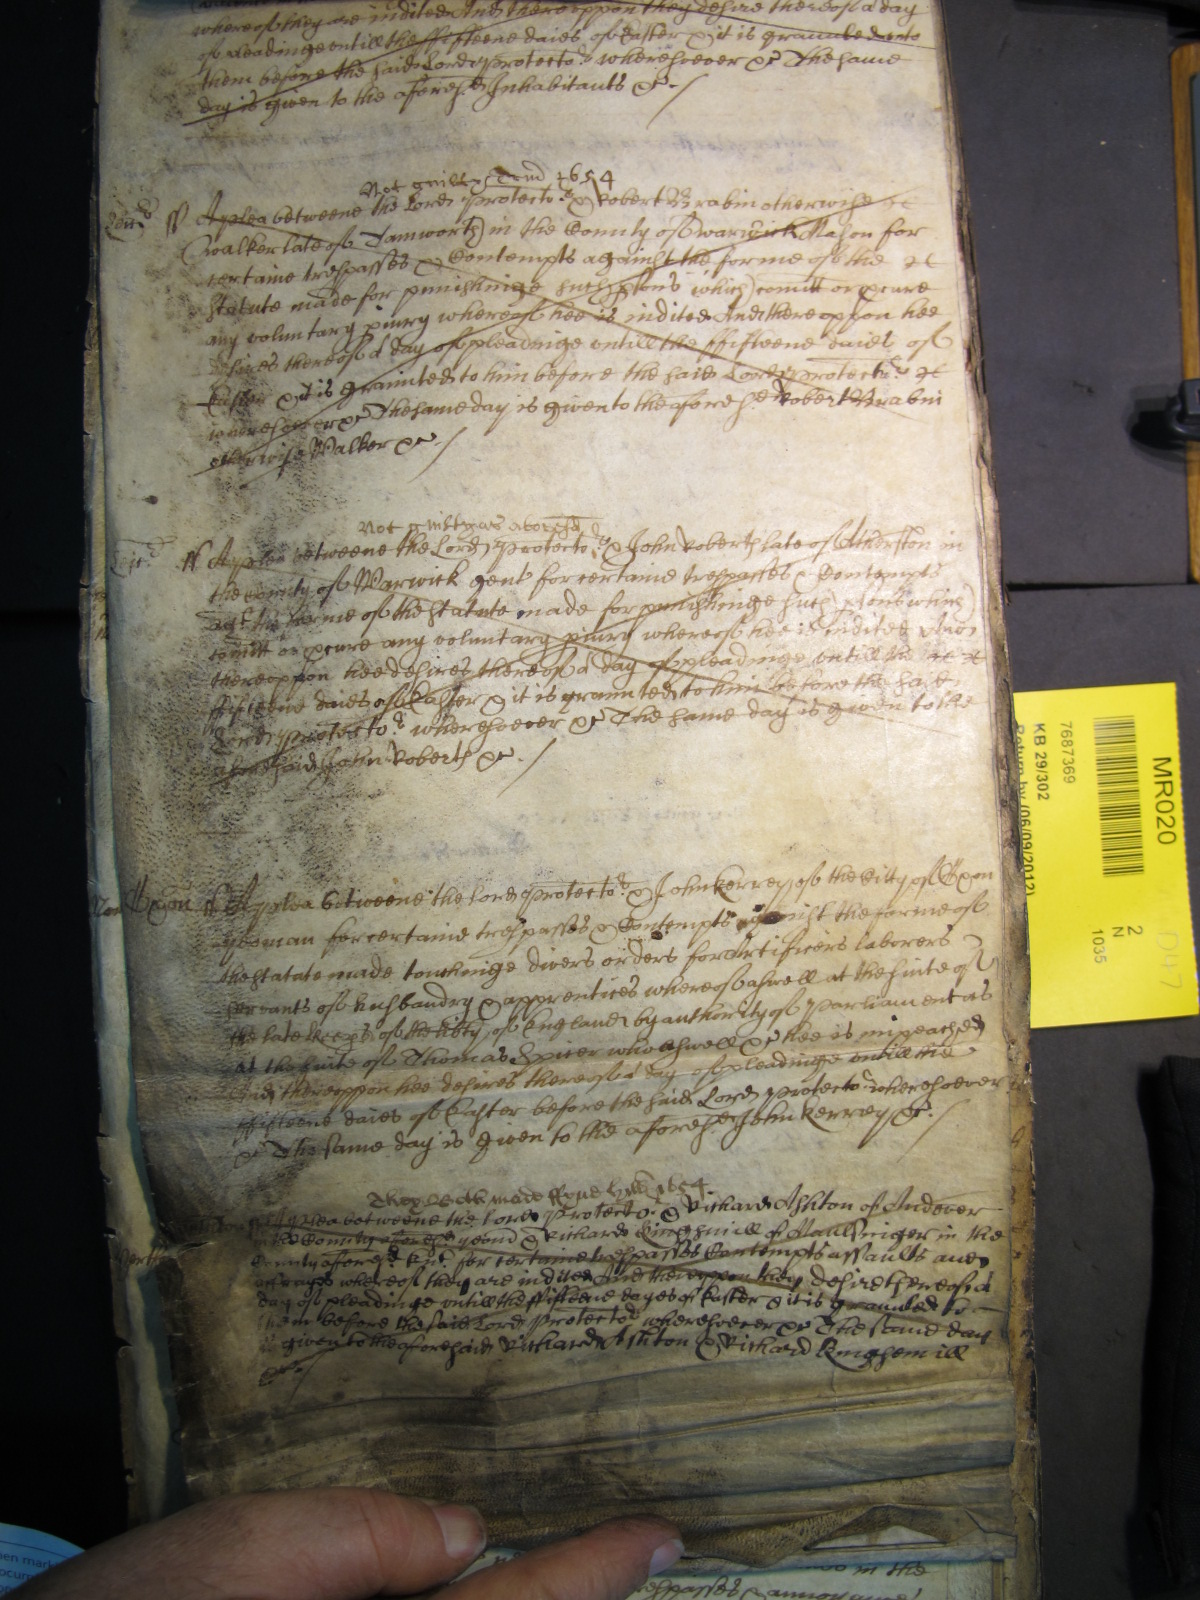 whereof they are indited And thereoppon they desire thereof a day
of pleadinge untill the ffifteene daies of Easter & it is graunted unto
them before the said Lord Protector wheresoever &c The same
day is given to the aforesd Inhabitants &c /
Not guilty 1654
A plea betweene the Lord Protector & Robert Brabin otherwise
Walker late of Tamworth in the County of Warwick Mason for
certaine trespasses & Contempts against the forme of the
statute made for punishinge such psons which comitt or pcure
any voluntary piury whereof hee is indited And thereoppon hee
desires thereof a day of pleadinge untill the ffifteene daies of
Easter & it is graunted to him before the said Lord Protector
wheresoever &c The same day is given to the aforesd Robert Brabin
otherwise Walker &c /
Not guilty as abovesd
A plea betweene the Lord Protector & John Roberts late of Atherston in
the County of Warwick gent for certaine trespasses & Contempts
agt the forme of the statute made for punishinge such psons which
comitt or pcure any voluntary piury whereof hee is indited And
thereoppon hee desires thereof a day of pleadinge untill the
ffifteene daies of Easter & it is graunted to him before the said
Lord Protector wheresoever &c The same day is given to the
aforesaid John Roberts &c /
Exon A plea betweene the Lord Protector & John Kerrey of the Citty of Exon
yeoman for certaine trespasses & Contempts against the forme of
the statute made touchinge divers orders for Artificers laborers
servants of husbandry & apprentices whereof aswell at the suite of
the late Keeps of the libty of England by authority of Parliament as
at the suite of Thomas Spicer who aswell &c hee is impeached
And thereoppon hee desires thereof a day of pleadinge untill the
ffifteene daies of Easter before the said Lord Protector wheresoever
&c The same day is given to the aforesd John Kerrey &c /
made ffyne 1654
A plea betweene the Lord Protector & Richard Ashton of Andever
in the County aforesd & Richard Kinghmill of in the
County aforesd for certaine trespasses Contempts assaults and
whereof they are indited And thereoppon they desire thereof a
day of pleadinge untill the ffifteene dayes of Easter & it is graunted to
them before the said Lord Protector wheresoever &c The same day
is given to the aforesaid Richard Ashton & Richard Kinghemill
&c /
in the
trespasses &
MR020
7687369
KB 29/302
Return by (06/09/2012)
2
N
1035
D47